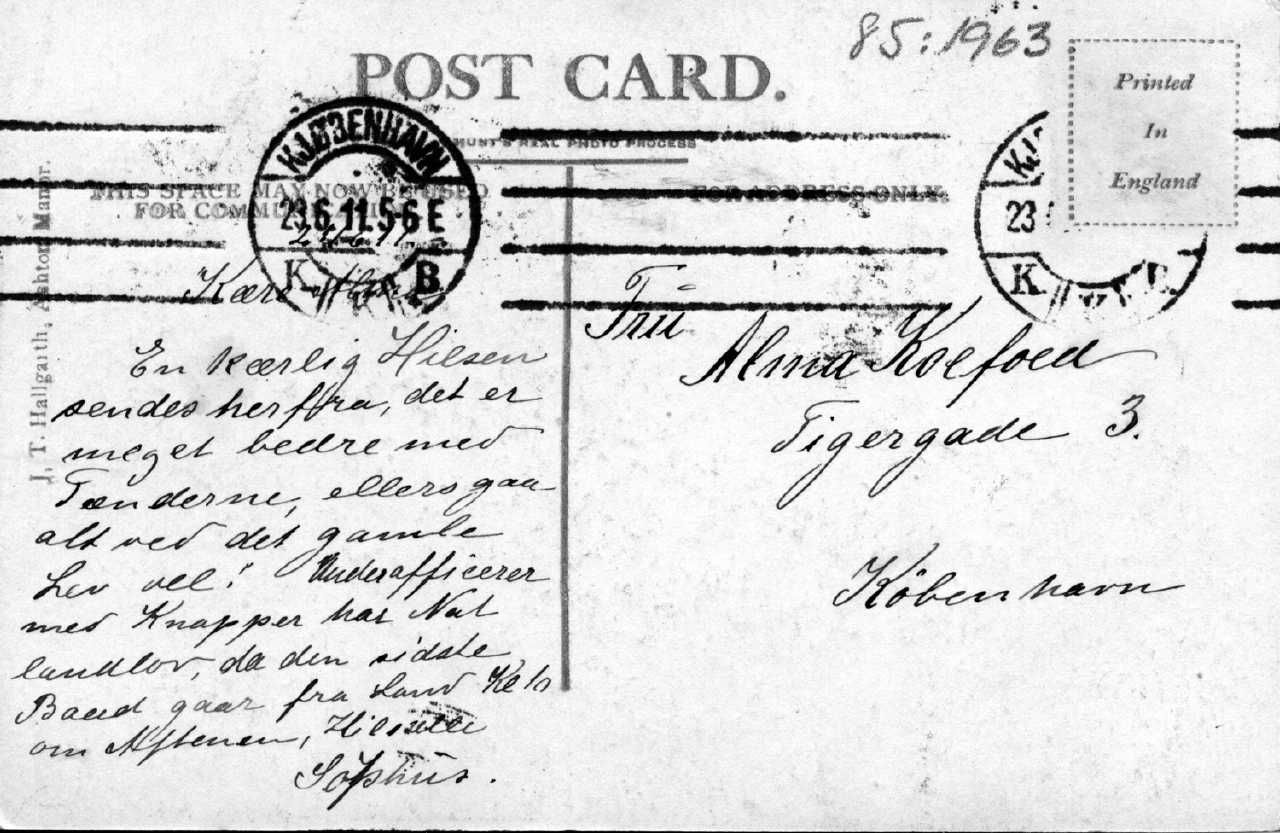 85:1963
POST CARD.
Printed
In
England
HUNT'S REAL PHOTO PROCESS
THIS SPACE MAY NOW BE USED
FOR COMMUNICATION
FOR ADDRESS ONLY.
KJØBENHAVN
23.6.11.5-6 E
K. B
23
K.
J. T. Hallgarth, Ashton Manor.
23/6 11
Kære Alma
En kærlig Hilsen
sendes herfra, det er
meget bedre med
Tænderne, ellers gaar
alt ved det gamle
Lev vel! Underofficerer
med Knapper har Nat
landlov, da den sidste
Baad gaar fra Land
om Aftenen, Hilsen
Sophus.
Frü
Alma Koefoed
Tigergade 3.
København